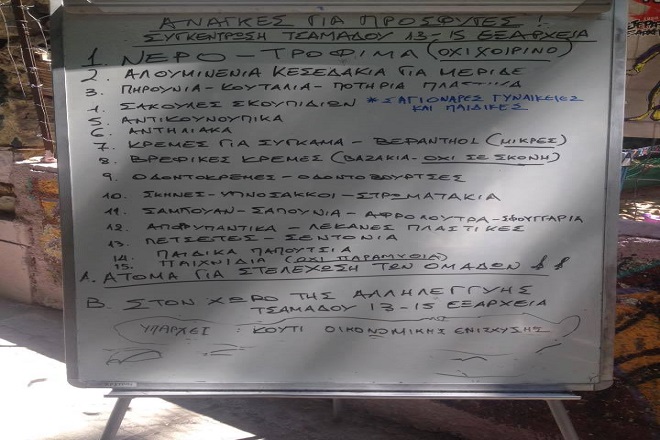 ΑΝΑΓΚΕΣ ΓΙΑ ΠΡΟΣΦΥΓΕΣ!
ΣΥΓΚΕΝΤΡΩΣΗ ΤΣΑΜΑΔΟΥ 13-15 ΕΞΑΡΧΕΙΑ
1. ΝΕΡΟ - ΤΡΟΦΙΜΑ (ΟΧΙ ΧΟΙΡΙΝΟ)
2. ΑΛΟΥΜΙΝΕΝΙΑ ΚΕΣΕΔΑΚΙΑ ΓΙΑ ΜΕΡΙΔΕ
3. ΠΗΡΟΥΝΙΑ - ΚΟΥΤΑΛΙΑ - ΠΟΤΗΡΙΑ
4. ΣΑΚΟΥΛΕΣ ΣΚΟΥΠΙΔΙΩΝ * ΣΑΓΙΟΝΑΡΕΣ ΓΥΝΑΙΚΕΙΕΣ
ΚΑΙ ΠΑΙΔΙΚΕΣ
5. ΑΝΤΙΚΟΥΝΟΥΠΙΚΑ
6. ΑΝΤΗΛΙΑΚΑ
7. ΚΡΕΜΕΣ ΓΙΑ ΣΥΓΚΑΜΑ - ΒΕΡΑΝΤΗΟΛ (ΜΙΚΡΕΣ)
8. ΒΡΕΦΙΚΕΣ ΚΡΕΜΕΣ (ΒΑΖΑΚΙΑ - ΟΧΙ ΣΕ ΣΚΟΝΗ)
9. ΟΔΟΝΤΟΚΡΕΜΕΣ - ΟΔΟΝΤΟΒΟΥΡΤΣΕΣ
10. ΣΚΗΝΕΣ - ΥΠΝΟΣΑΚΚΟΙ - ΣΤΡΩΜΑΤΑΚΙΑ
11. ΣΑΜΠΟΥΑΝ - ΣΑΠΟΥΝΙΑ - ΑΦΡΟΛΟΥΤΡΑ - ΣΦΟΥΓΓΑΡΙΑ
12. ΑΠΟΡΥΠΑΝΤΙΚΑ - ΛΕΚΑΝΕΣ ΠΛΑΣΤΙΚΕΣ
13. ΠΕΤΣΕΤΕΣ - ΣΕΝΤΟΝΙΑ
14. ΠΑΙΔΙΚΑ ΠΑΠΟΥΤΣΙΑ
15. ΠΑΙΧΝΙΔΙΑ (ΟΧΙ ΠΑΡΑΜΥΘΙΑ)
Α. ΑΤΟΜΑ ΓΙΑ ΣΤΕΛΕΧΩΣΗ ΤΩΝ ΟΜΑΔΩΝ
Β. ΣΤΟΝ ΧΩΡΟ ΤΗΣ ΑΛΛΗΛΕΓΓΥΗΣ
ΤΣΑΜΑΔΟΥ 13-15 ΕΞΑΡΧΕΙΑ
ΥΠΑΡΧΕΙ ΚΟΥΤΙ ΟΙΚΟΝΟΜΙΚΗΣ ΕΝΙΣΧΥΣΗΣ